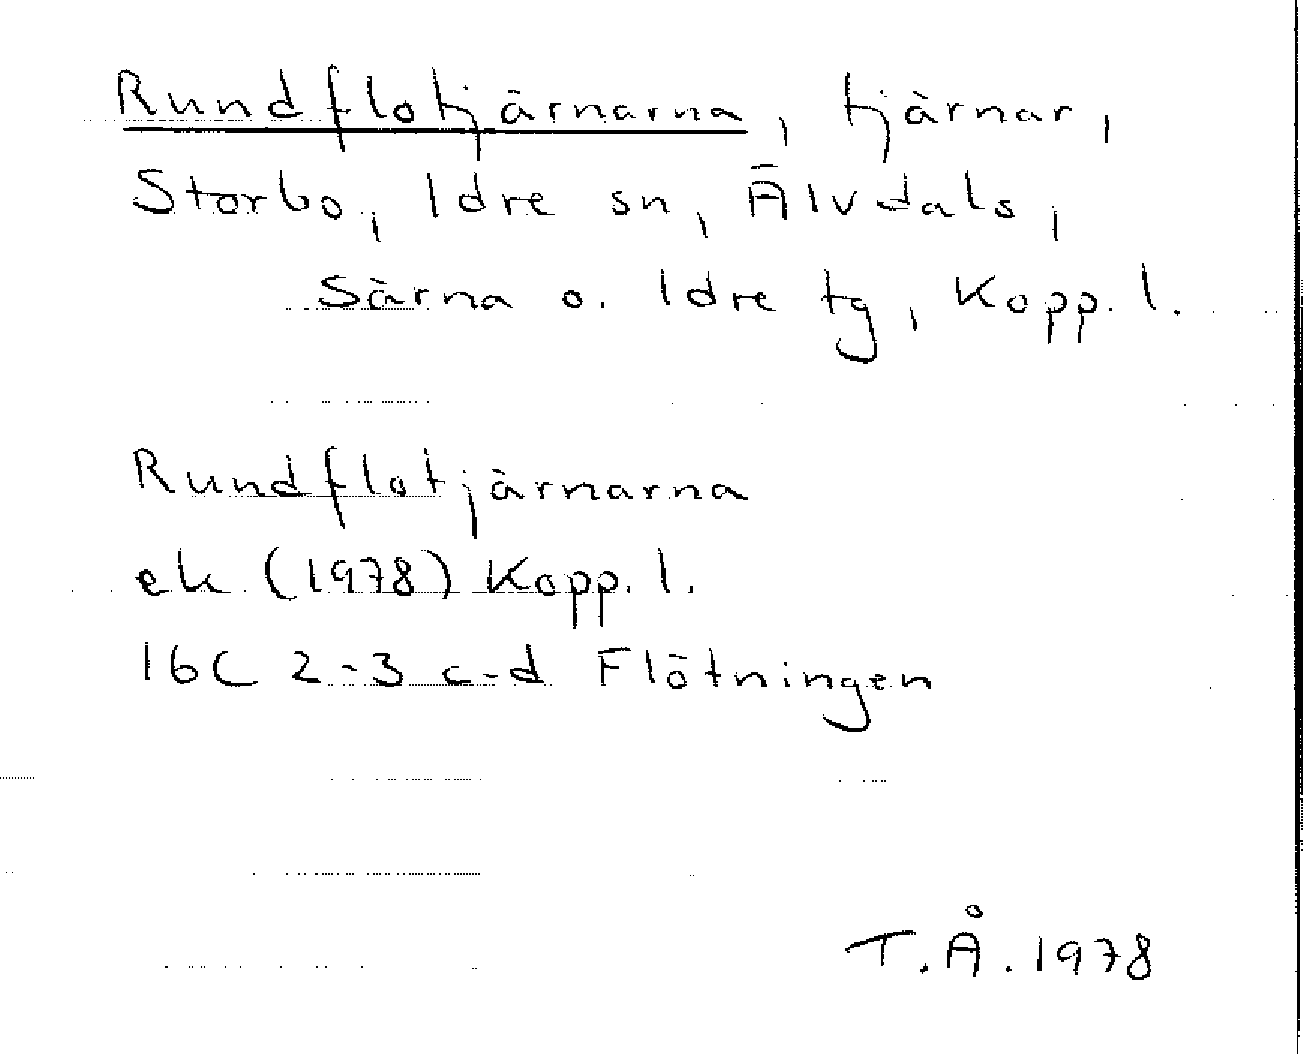 Rundflotjärnarna, tjärnar,
Storbo, Idre sn, Älvdals,
Särna o. Idre tg, Kopp. l.
Rundflotjärnarna
ek (1978) Kopp. l.
16C 2-3 c-d Flötningen
T.Å. 1978